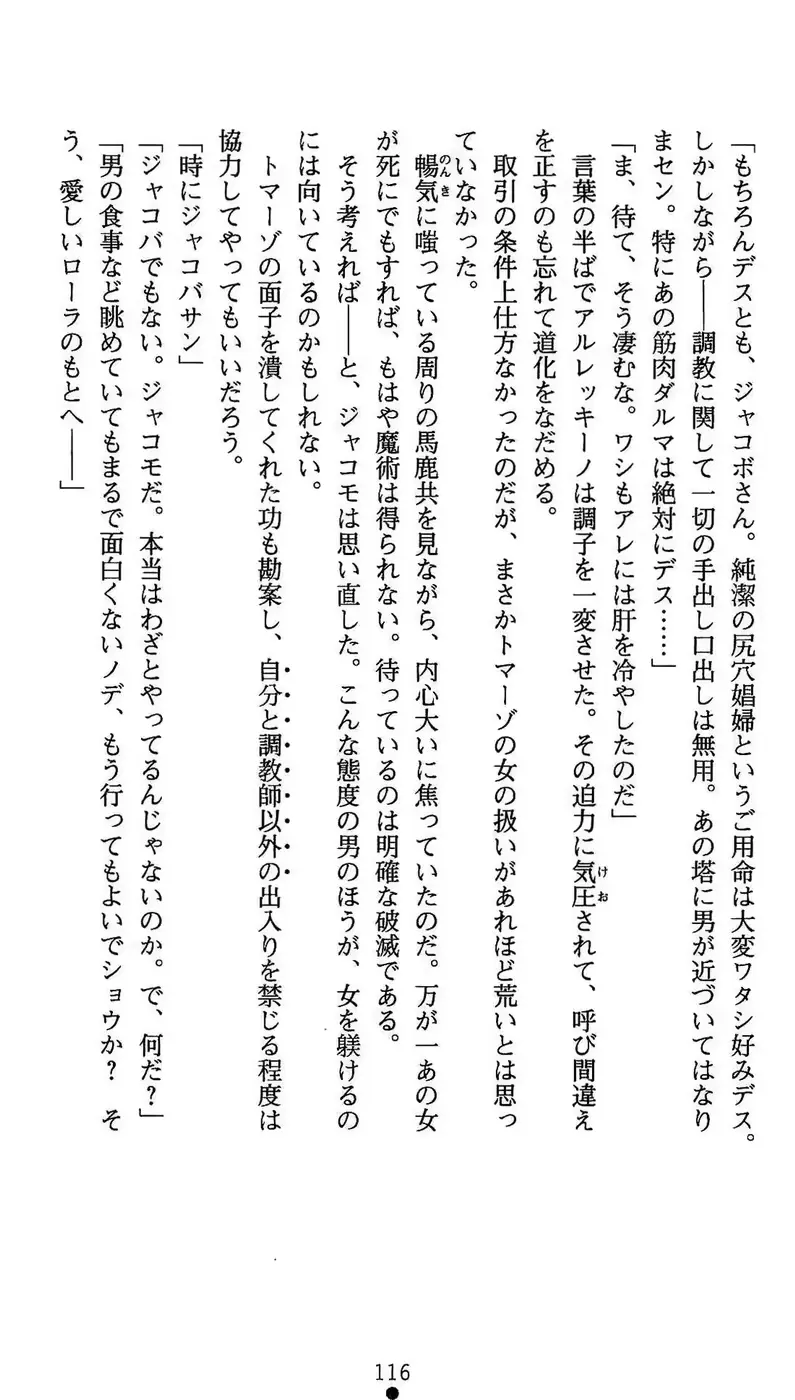 「もちろんデスとも、ジャコボさん。純潔の尻穴娼婦というご用命は大変ワタシ好みデス。
しかしながら――調教に関して一切の手出し口出しは無用。あの塔に男が近づいてはなり
まセン。特にあの筋肉ダルマは絶対にデス……」
「ま、待て、そう凄むな。ワシもアレには肝を冷やしたのだ」
言葉の半ばでアルレッキーノは調子を一変させた。その迫力に気圧されて、呼び間違え
を正すのも忘れて道化をなだめる。
取引の条件上仕方なかったのだが、まさかトマーゾの女の扱いがあれほど荒いとは思っ
ていなかった。
暢気に嗤っている周りの馬鹿共を見ながら、内心大いに焦っていたのだ。万が一あの女
が死にでもすれば、もはや魔術は得られない。待っているのは明確な破滅である。
そう考えれば――と、ジャコモは思い直した。こんな態度の男のほうが、女を躾けるの
には向いているのかもしれない。
トマーゾの面子を潰してくれた功も勘案し、自分と調教師以外の出入りを禁じる程度は
協力してやってもいいだろう。
「時にジャコバサン」
「ジャコバでもない。ジャコモだ。本当はわざとやってるんじゃないのか。で、何だ？」
「男の食事など眺めていてもまるで面白くないノデ、もう行ってもよいでショウか？　そ
う、愛しいローラのもとへ――」
116